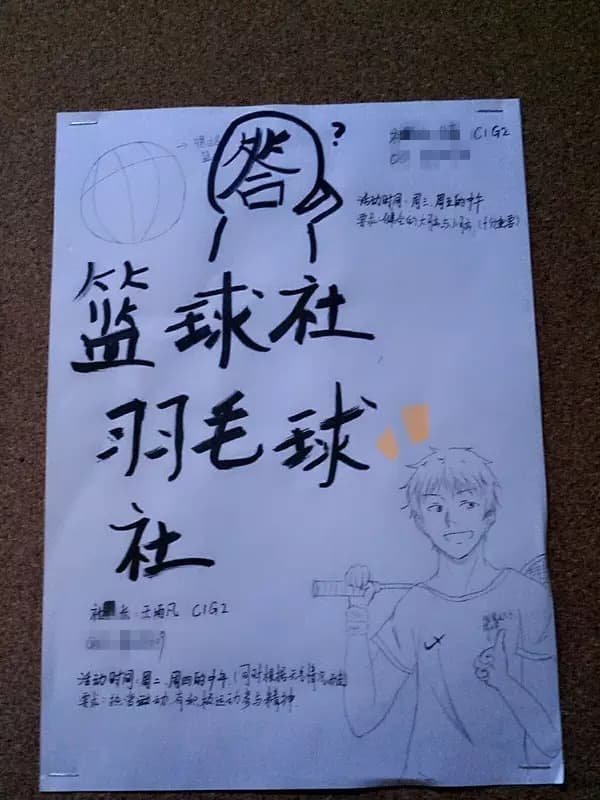 答?
C1G2
活动时间：周三、周五的中午
要求：健全的大脑与小脑（十分重要）
篮球社
羽毛球
社
社 长：王 凡 C1G2
活动时间：周二、周四的中午（同时根据天气情况而定
要求：经常运动，有积极运动参与精神